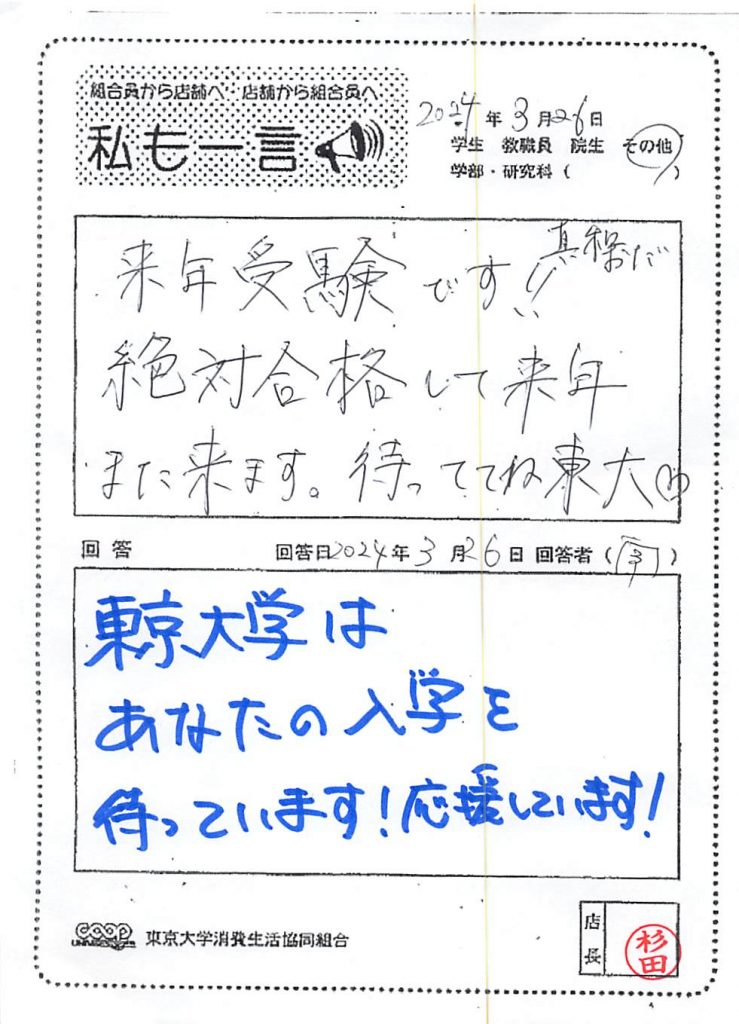 組合員から店舗へ・店舗から組合員へ
私も一言
2024年3月26日
学生 教職員 院生 その他
学部・研究科( )
来年受験です!! 真保だ
絶対合格して来年
また来ます。待っててね東大
回答 回答日2024年3月26日 回答者( )
東京大学は
あなたの入学を
待っています!応援しています!
coop 東京大学消費生活協同組合
店長 杉田